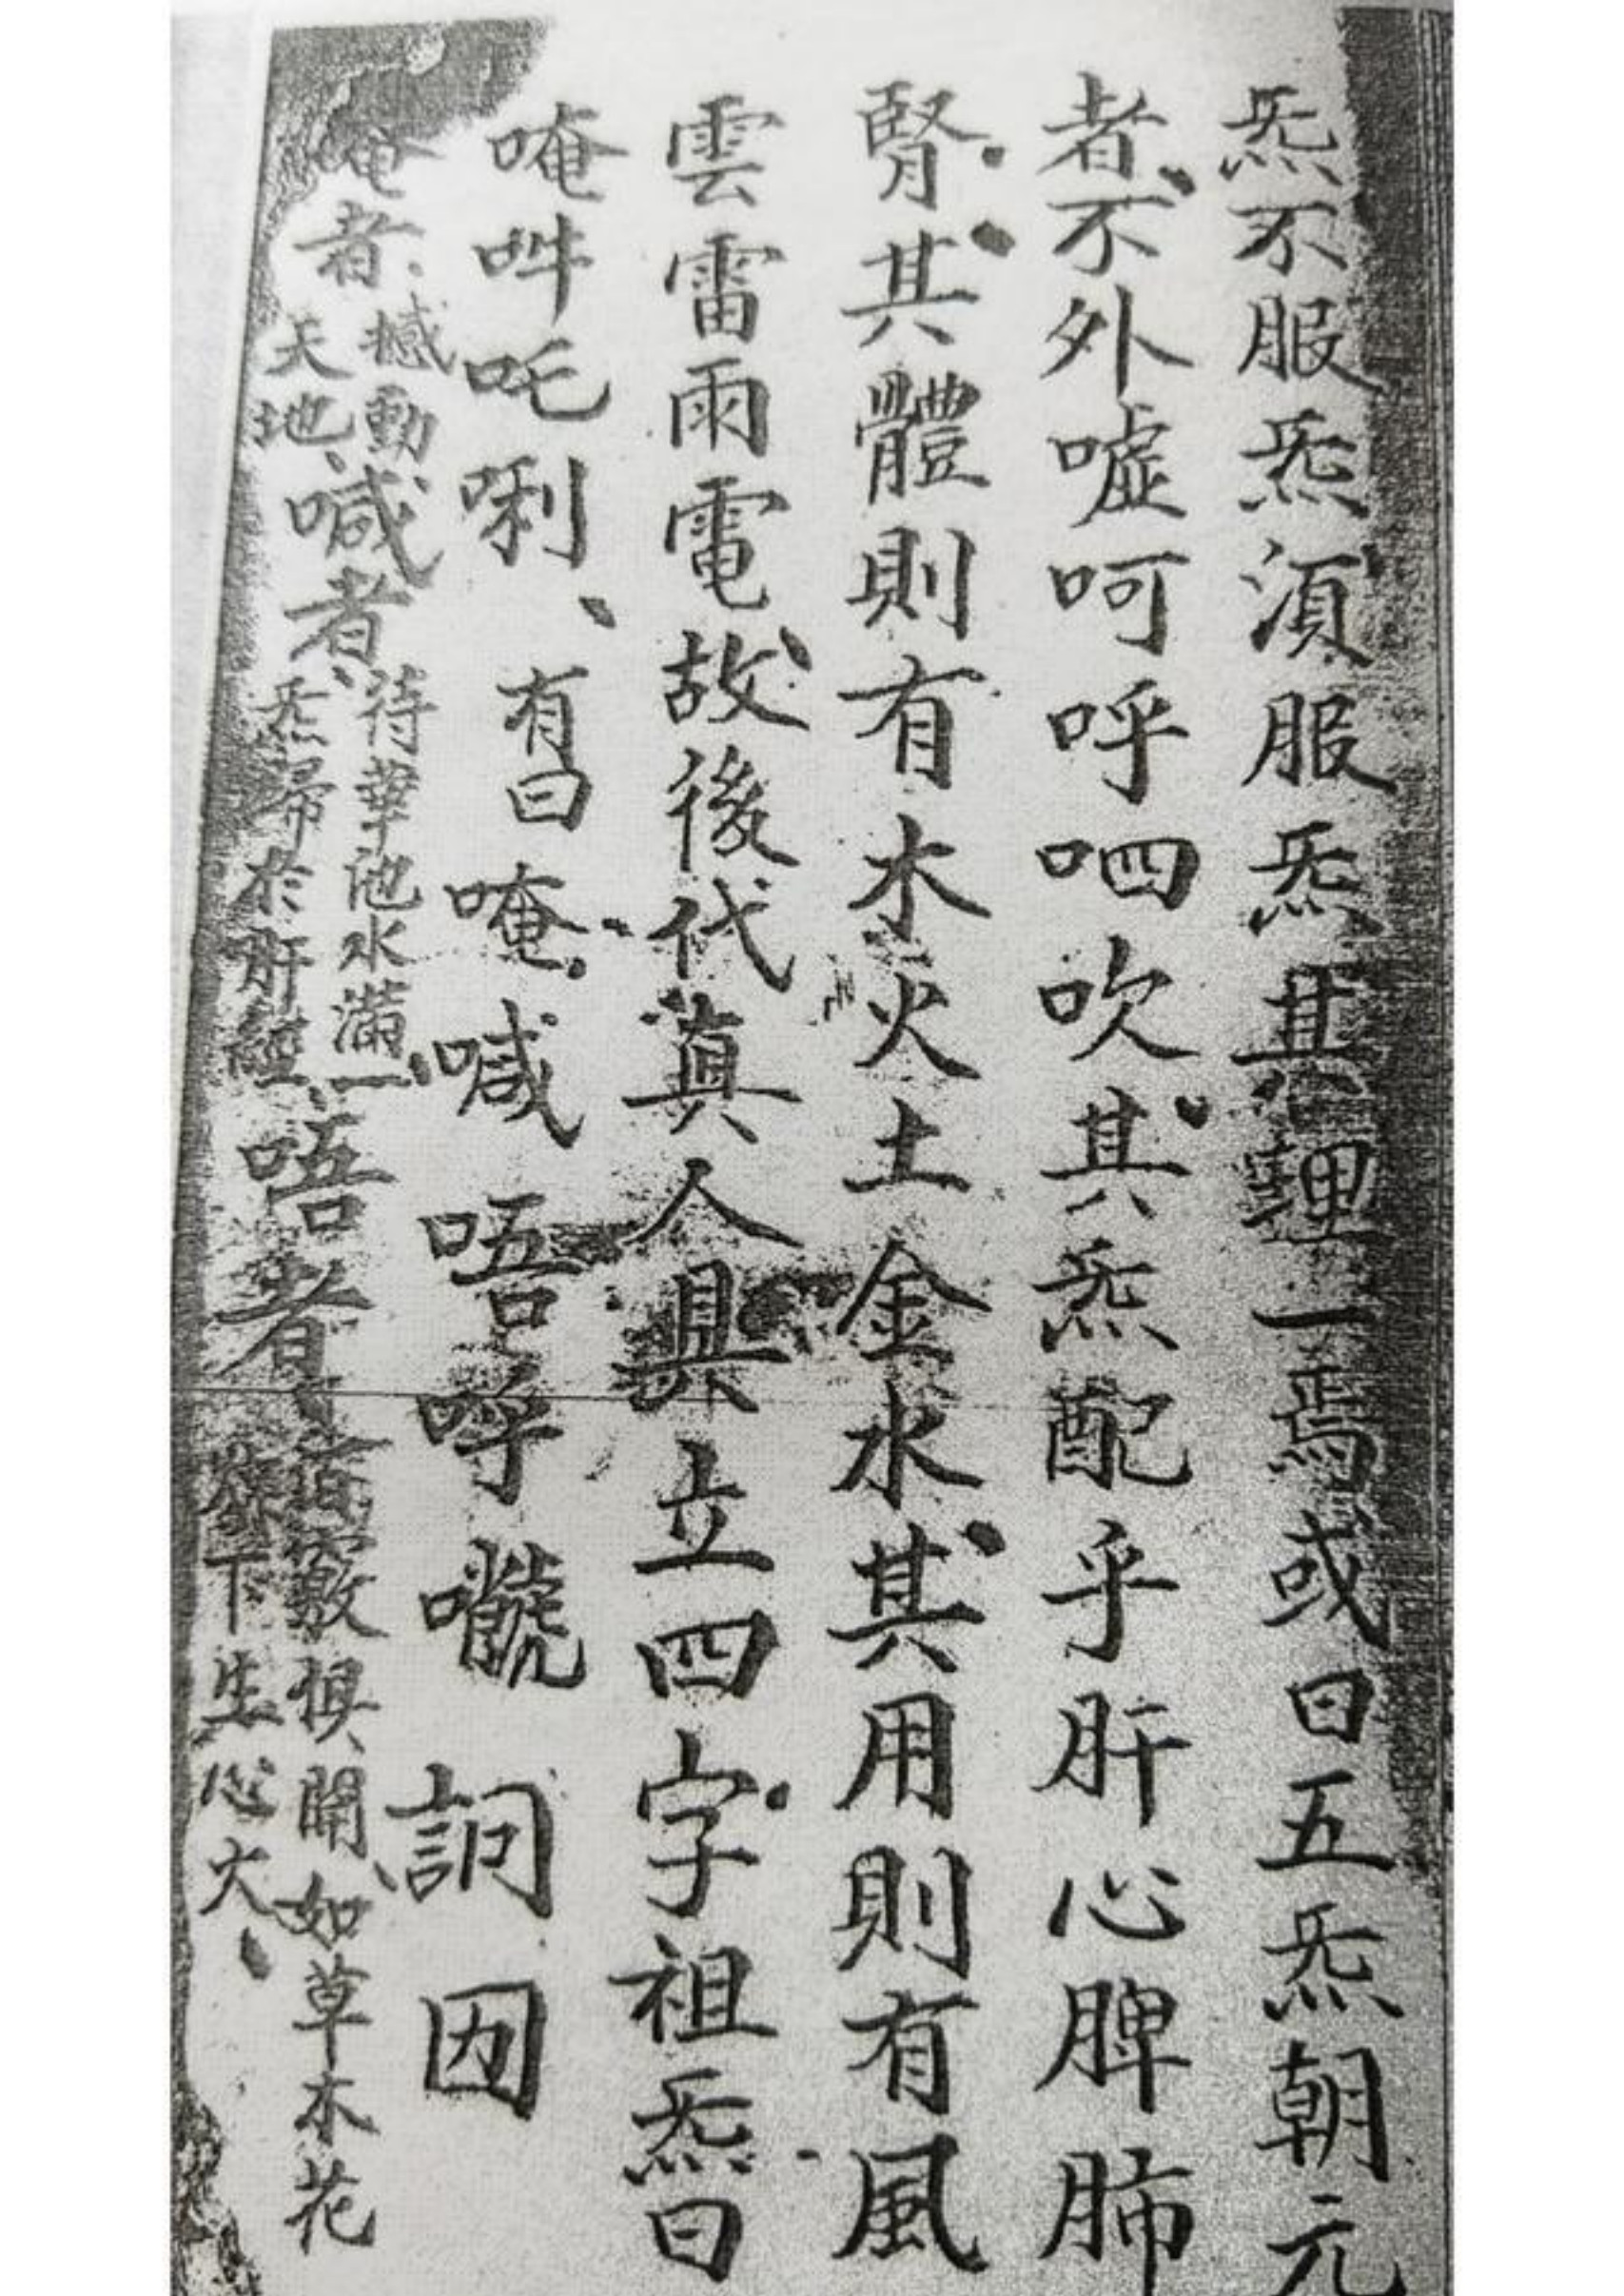 炁不服炁須服炁其理一焉或曰五炁朝元
者不外噓呵呼呬吹其炁配乎肝心脾肺
腎其體則有木火土金水其用則有風
雲雷雨電故後代真人具立四字祖炁曰
唵吽吒唎有曰唵喊唔呼
者撼動
天地喊者待華池水滿一
炁歸於肝經唔者竅俱開如草木花
下生心火